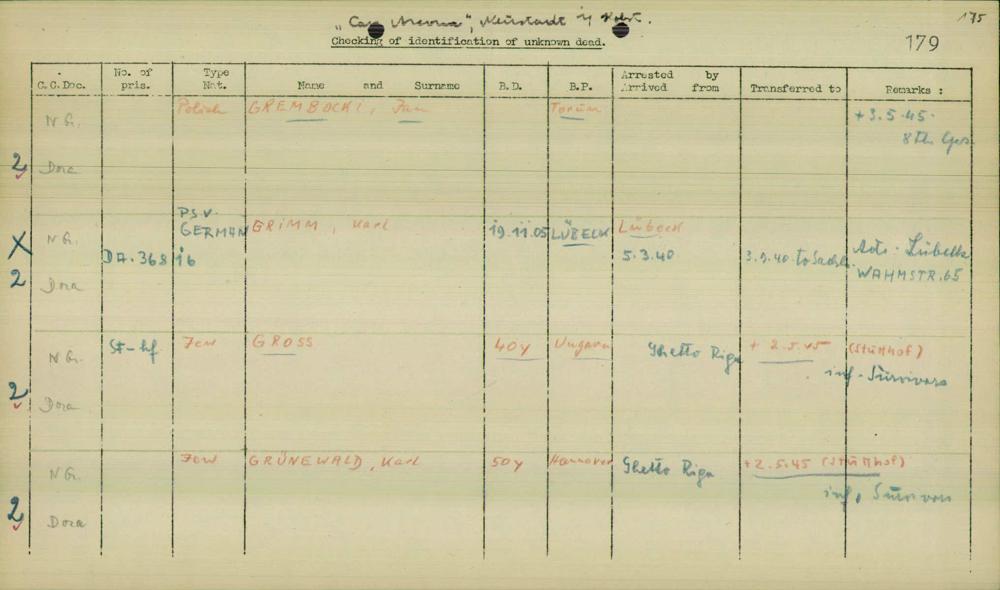 "Cap Arcona", Neustadt i/ Holst.
175
Checking of identification of unknown dead.
179
C.C.Doc. No. of pris. Type Nat. Name and Surname B.D. B.P. Arrested by Arrived from Transferred to Remarks :
N G. Polish GREMBOCKI, Jan Torun + 3.5.45.
8th
2 Dora
PSV.
N G. GERMAN GRIMM, Karl 19.11.05 LÜBECK Lübeck
X DA.368 16 5.3.40 3.9.40 to Sachs. Adr. Lübeck
2 Dora WAHMSTR.65
N G. St-hf Jew GROSS 40y Ungarn Ghetto Riga + 2.5.45 (Stutthof)
inf. Survivors
2 Dora
N G. Jew GRÜNEWALD, Karl 50y Hannover Ghetto Riga +2.5.45 (Stutthof)
inf. Survivors
2 Dora